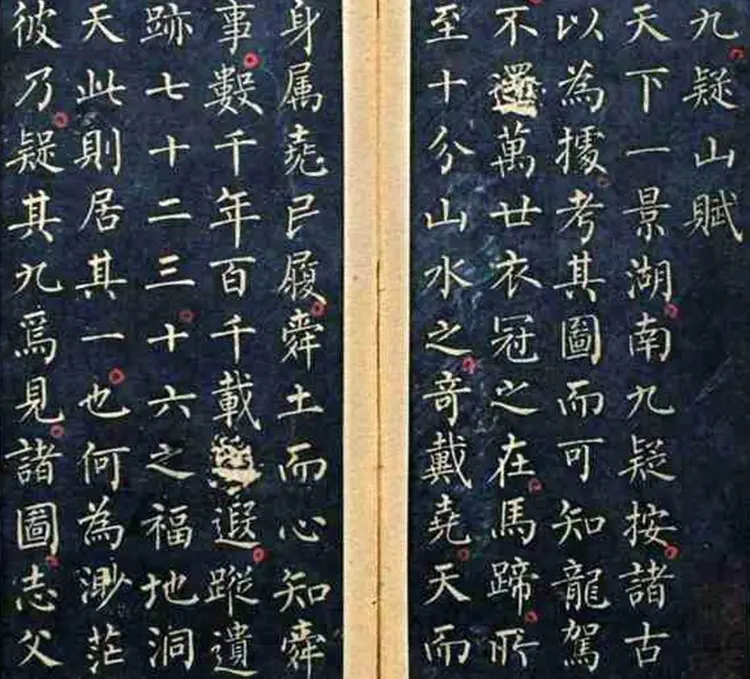 九疑山賦
天下一景湖南九疑按諸古
以為據考其圖而可知龍駕
不還萬世衣冠之在馬蹄所
至十分山水之奇戴堯天而
身属堯已履舜土而心知舜
事數千年百千載遐蹤遺
跡七十二三十六之福地洞
天此則居其一也何為渺茫
彼乃疑其九焉見諸圖志父